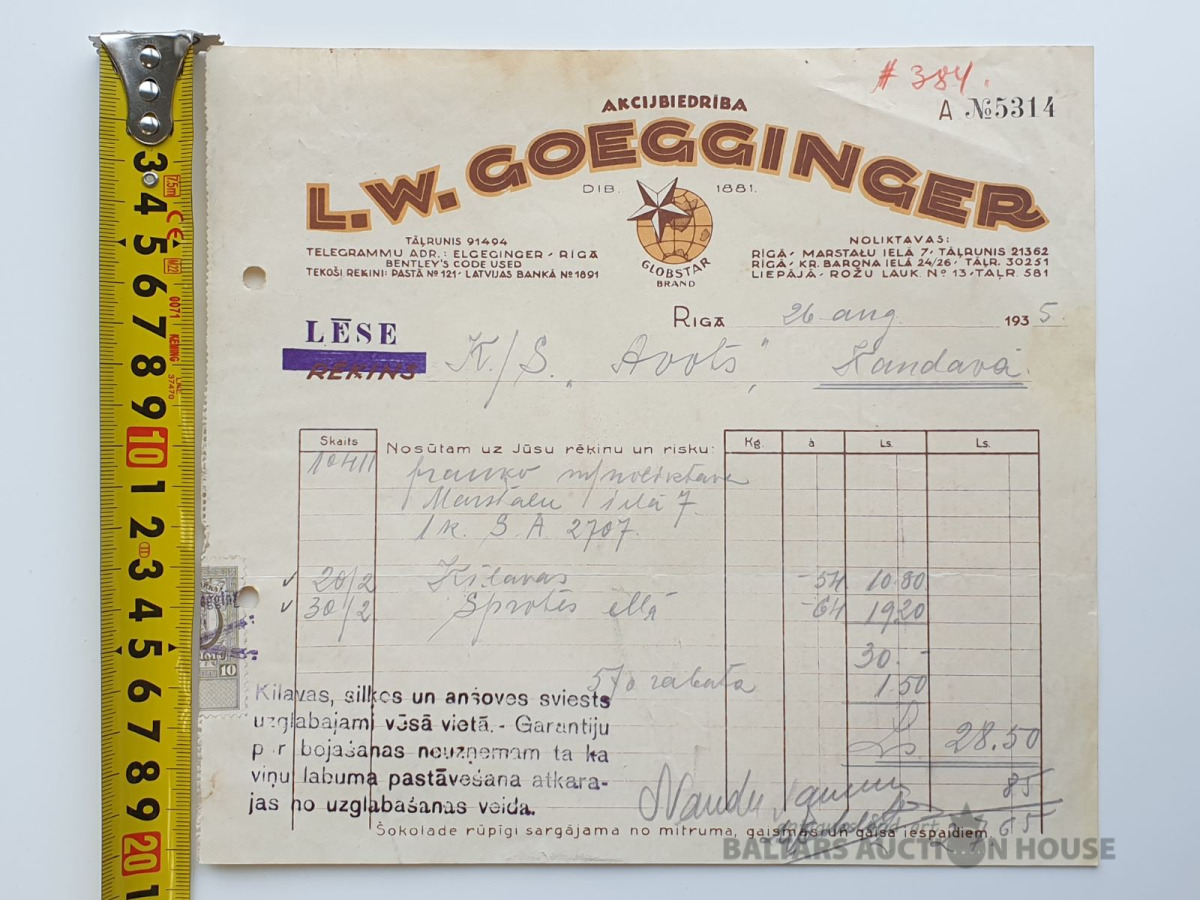 # 384.
A №5314
AKCIJBIEDRĪBA
L.W. GOEGGINGER
DIB. 1881.
TĀĻRUNIS 91494
TELEGRAMMU ADR.: ELGEGINGER - RĪGĀ
BENTLEY'S CODE USED
TEKOŠI REĶINI: PASTĀ № 121 - LATVIJAS BANKĀ № 1891
GLOBSTAR
BRAND
NOLIKTAVAS:
RĪGĀ - MARSTAĻU IELĀ 7 - TĀĻRUNIS 21362
RĪGĀ - KR. BARONA IELĀ 24/26 - TĀĻR. 30251
LIEPĀJĀ - ROŽU LAUK. № 13 - TAĻR. 581
RĪGĀ 26 aug. 1935.
LĒSE
REĶINS
K./S. „Avots" Kandavā.
Skaits
Nosūtam uz Jūsu rēķinu un risku:
Kg. à Ls. Ls.
10411 franko m/noliktava
Marstaļu ielā 7.
1 k. S. A. 2707.
20/2 Ķilavas -54 10.80
30/2 Sprotes eļļā -64 19.20
30.-
5% rabata 1.50
Ls 28.50
85
27.65
Ķilavas, siļķes un anšoves sviests
uzglabajami vēsā vietā. - Garantiju
par bojašanas neuzņemam ta kā
viņu labuma pastāvēšana atkara-
jas no uzglabašanas veida.
Naudu saņemu
Šokolade rūpīgi sargājama no mitruma, gaismas un gaisa iespaidiem.
BALTARS AUCTION HOUSE
3 4 5 6 7 8 9 10 1 2 3 4 5 6 7 8 9 20 1
7,5m
CE
M22
0071
KEMING
37470
10